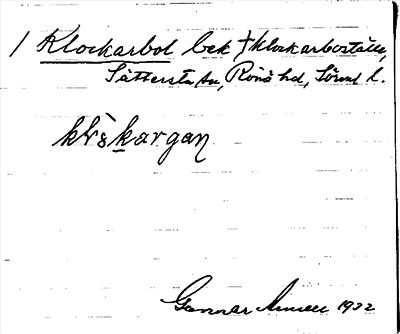 / Klockarbol bek †klockarboställe,
Sättersta sn, Rönö hd, Sörml l.
kl'ɷ̀kargan
Gunnar 1932